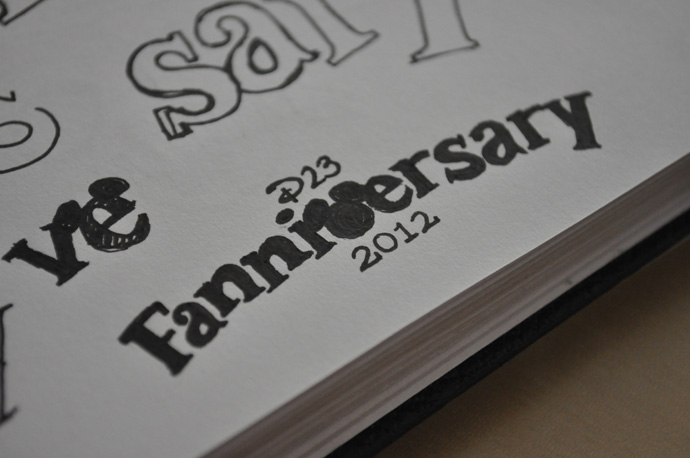 sary
e
ve
D23
Fanniversary
2012